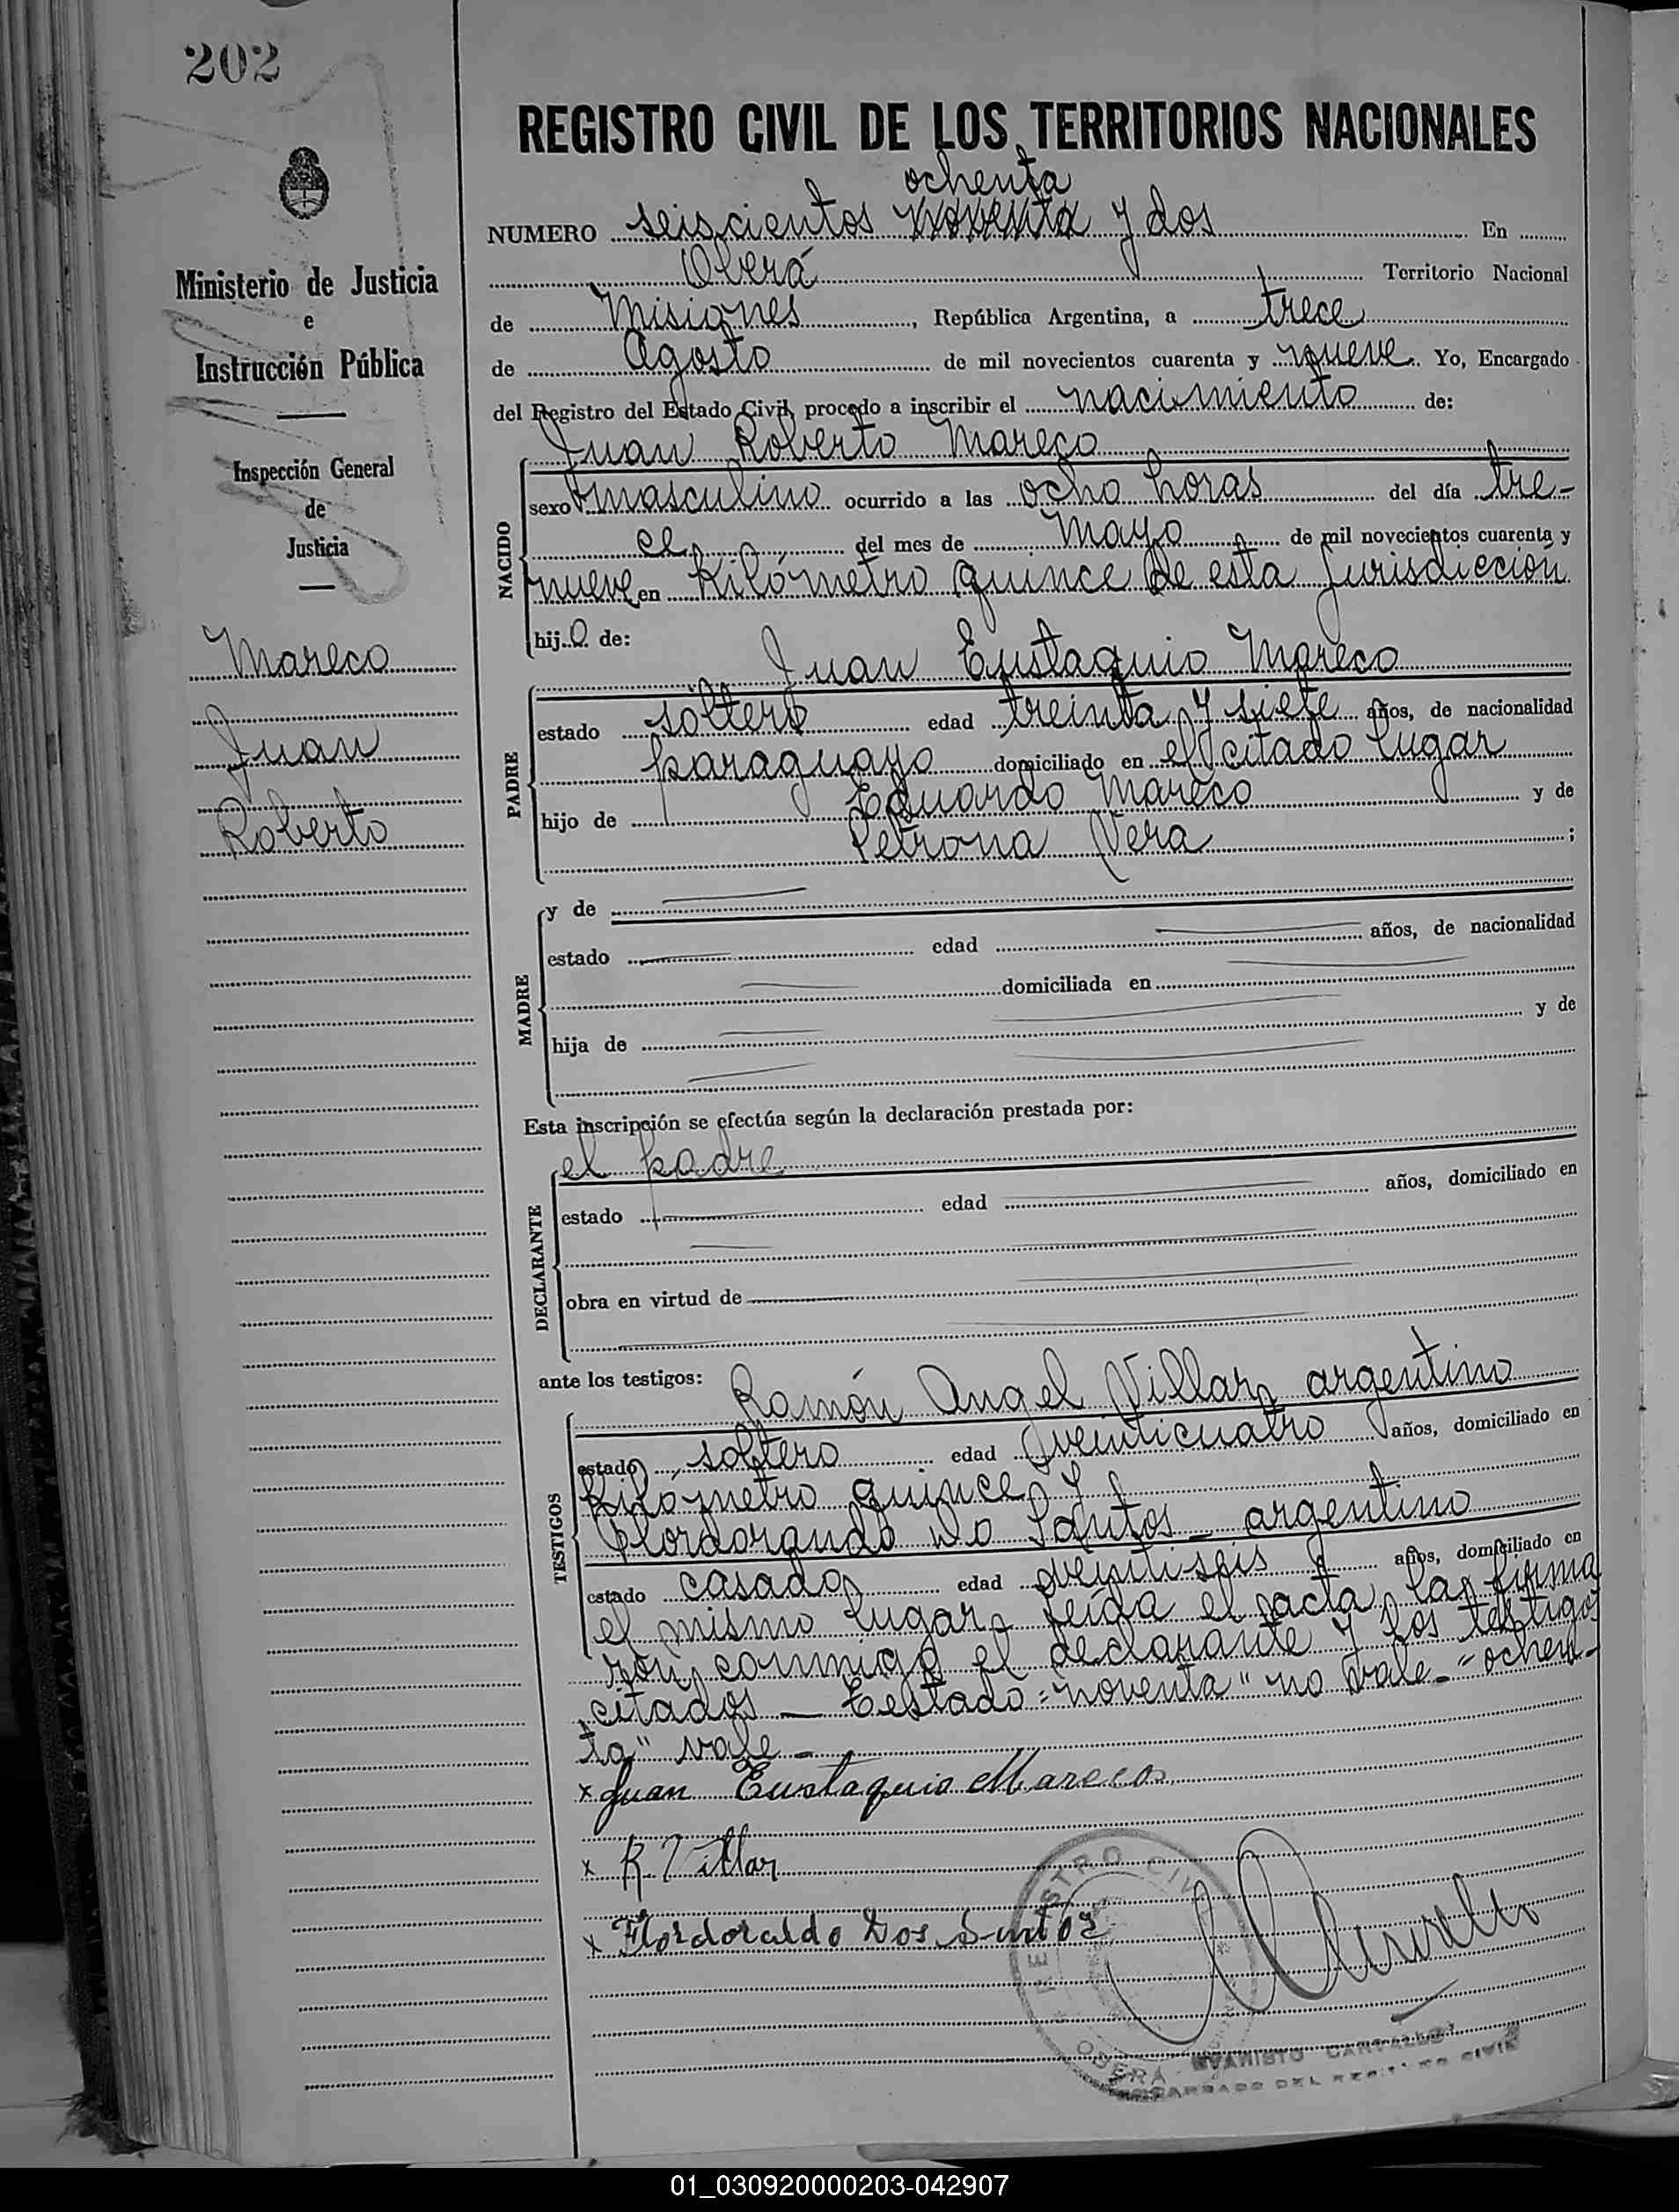 202
REGISTRO CIVIL DE LOS TERRITORIOS NACIONALES
ochenta
NUMERO seiscientos noventa y dos En
Oberá Territorio Nacional
de Misiones, República Argentina, a trece
de Agosto de mil novecientos cuarenta y nueve. Yo, Encargado
del Registro del Estado Civil, procedo a inscribir el nacimiento de:
Juan Roberto Mareco
NACIDO
sexo masculino ocurrido a las ocho horas del día tre-
ce del mes de Mayo de mil novecientos cuarenta y
nueve en Kilómetro quince de esta Jurisdicción
hijo de:
Juan Eustaquio Mareco
PADRE
estado soltero edad treinta y siete años, de nacionalidad
paraguayo domiciliado en el citado lugar
hijo de Eduardo Mareco y de
Petrona Vera ;
MADRE
y de
estado edad años, de nacionalidad
domiciliada en
hija de y de
Esta inscripción se efectúa según la declaración prestada por:
el padre
DECLARANTE
estado edad años, domiciliado en
obra en virtud de
ante los testigos:
Ramón Angel Villar, argentino
TESTIGOS
estado soltero edad veinticuatro años, domiciliado en
Kilómetro quince y
Flordorando Do Santos - argentino
estado casado, edad veintiseis años, domiciliado en
el mismo lugar, leída el acta, la firma
ron conmigo el declarante y los testigos
citados — Testado: "noventa" no vale - "ochen-
ta" vale -
x Juan Eustaquio Marecos
x R. Villar
x Flordoraldo Dos Santoz
REGISTRO CIVIL
OBERÁ
EVARISTO CARVALLO
ENCARGADO DEL REGISTRO CIVIL
Ministerio de Justicia
e
Instrucción Pública
Inspección General
de
Justicia
Mareco
Juan
Roberto
01_030920000203-042907